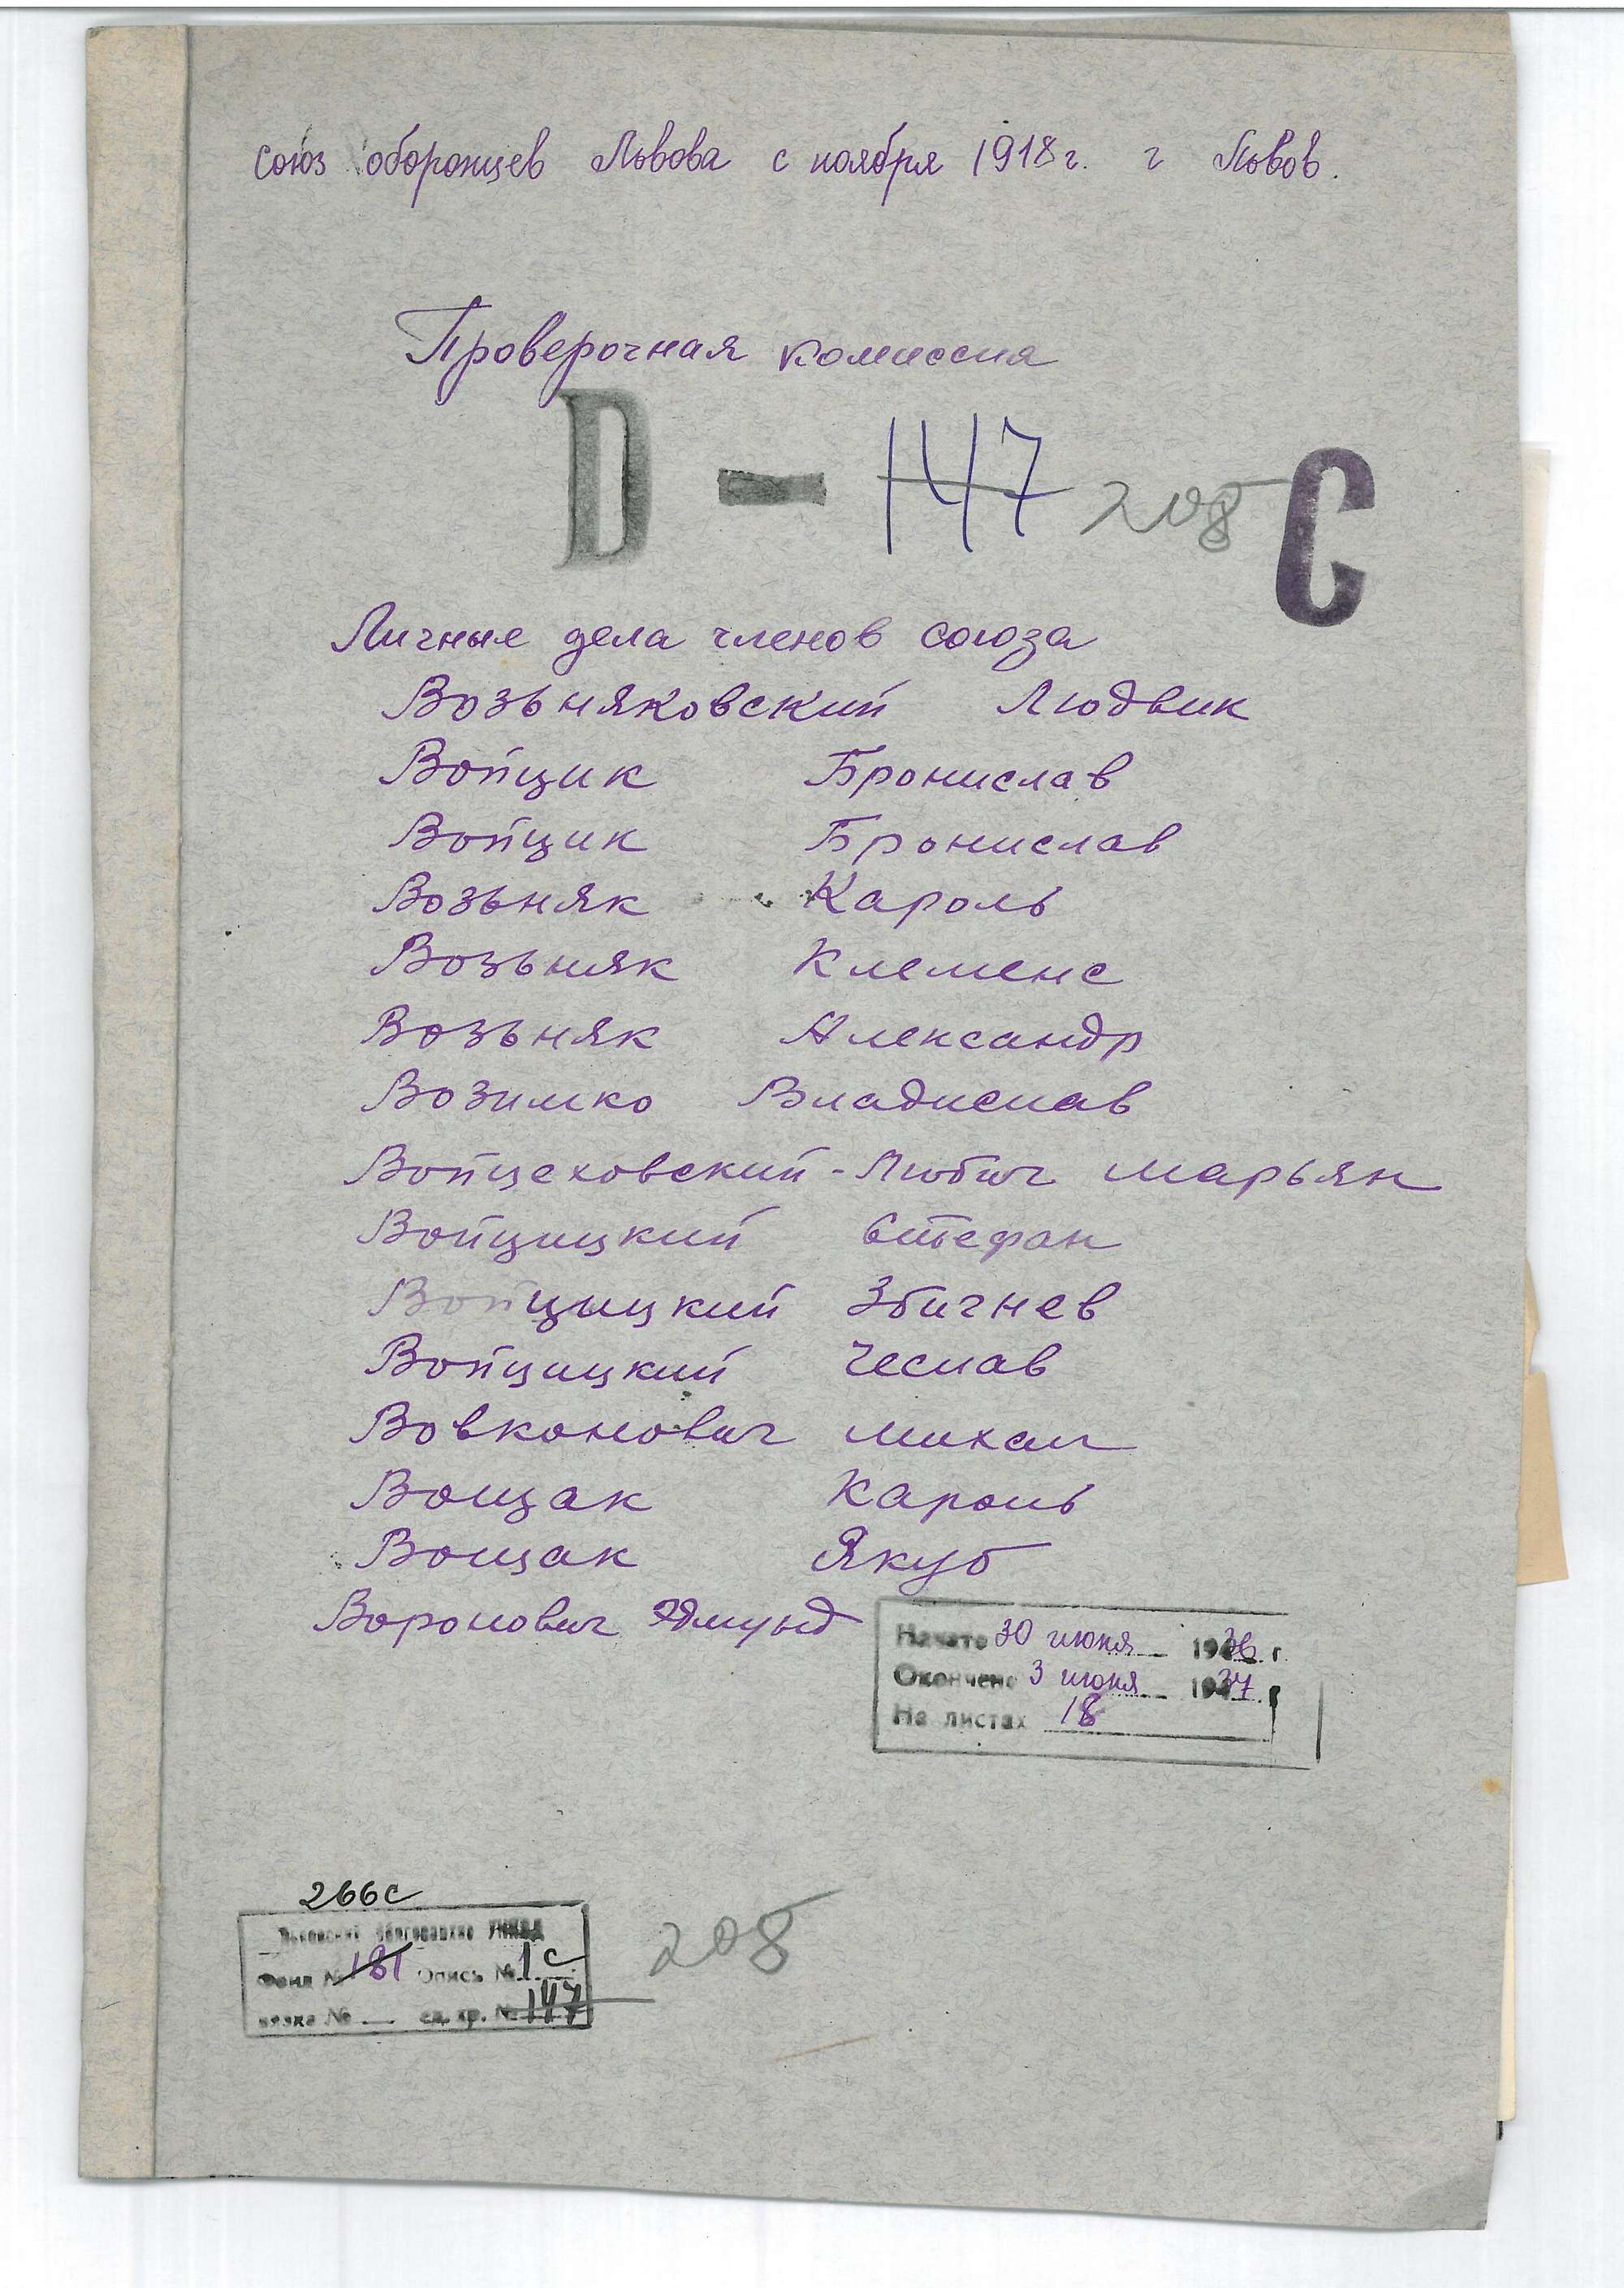 союз оборонцев Львова с ноября 1918 г. г Львов.
Проверочная комиссия
D - 147 208 С
Личные дела членов союза
Возьняковский Людвик
Войцик Бронислав
Войцик Бронислав
Возьняк Кароль
Возьняк Клеменс
Возьняк Александр
Возимко Владислав
Войцеховский-Любич Марьян
Войцицкий Стефан
Войцыцкий Збигнев
Войцицкий Чеслав
Вовконович Михал
Вощак Кароль
Вощак Якуб
Воронович Эдмунд
Начато 30 июня 1936 г.
Окончено 3 июня 1937 г
На листах 18
266с
Львовский облгосархив УНКВД
Фонд № 181 Опись № 1с
вязка № ед. хр. № 147
208